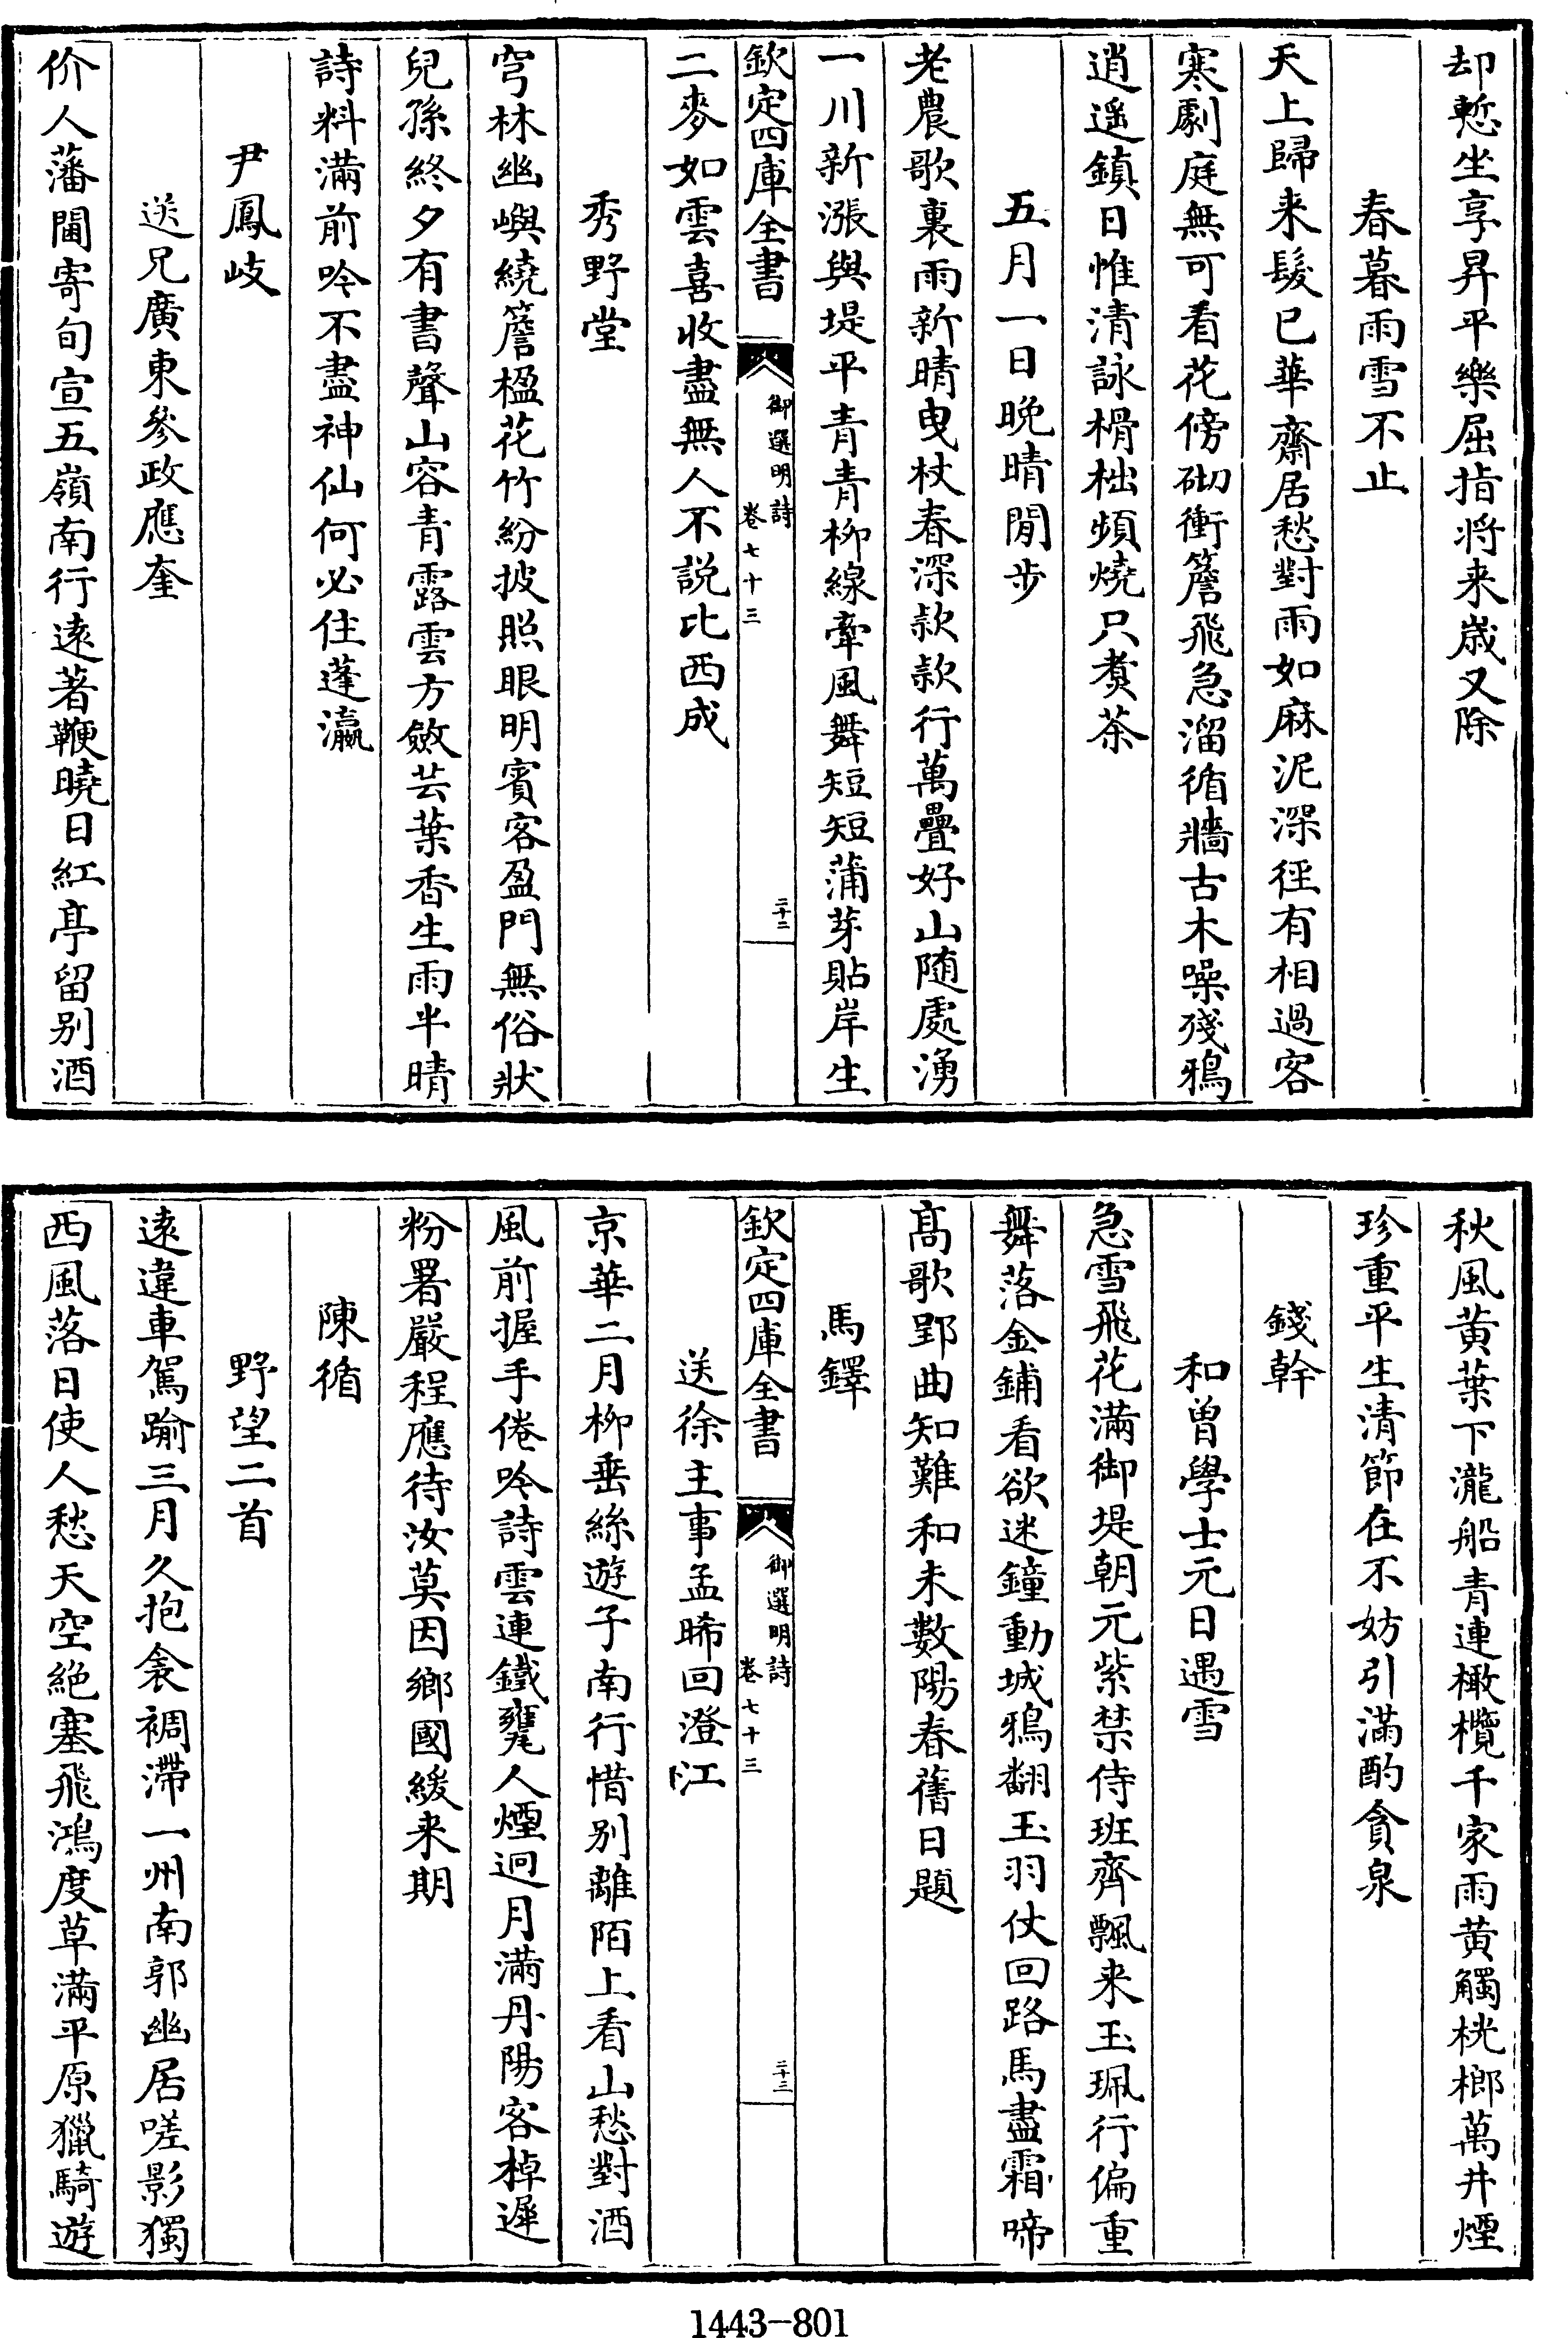 却慙坐享昇平樂屈指將来歳又除
春暮雨雪不止
天上歸来髮已華齋居愁對雨如麻泥深徑有相過客
寒劇庭無可看花傍砌衝簷飛急溜循牆古木噪殘鴉
逍遥鎮日惟清詠榾柮頻燒只煑茶
五月一日晚晴閒步
老農歌裏雨新晴曳杖春深款款行萬疊好山随處湧
一川新漲與堤平青青柳線牽風舞短短蒲芽貼岸生
欽定四庫全書
御選明詩
卷七十三
二十二
二麥如雲喜收盡無人不説比西成
秀野堂
穹林幽嶼繞簷楹花竹紛披照眼明賓客盈門無俗狀
兒孫終夕有書聲山容青露雲方斂芸葉香生雨半晴
詩料滿前吟不盡神仙何必住蓬瀛
尹鳳岐
送兄廣東參政應奎
价人藩閫寄旬宣五嶺南行逺著鞭曉日紅亭留别酒
秋風黄葉下瀧船青連橄欖千家雨黄觸桄榔萬井煙
珍重平生清節在不妨引滿酌貪泉
錢幹
和曾學士元日遇雪
急雪飛花滿御堤朝元紫禁侍班齊飄来玉珮行偏重
舞落金鋪看欲迷鐘動城鴉翻玉羽仗回路馬盡霜啼
髙歌郢曲知難和未數陽春舊日題
馬鐸
欽定四庫全書
御選明詩
卷七十三
二十三
送徐主事孟晞回澄江
京華二月柳垂絲遊子南行惜别離陌上看山愁對酒
風前握手倦吟詩雲連鐵甕人煙迥月滿丹陽客棹遲
粉署嚴程應待汝莫因鄉國緩来期
陳循
野望二首
逺違車駕踰三月久抱衾裯滯一州南郭幽居嗟影獨
西風落日使人愁天空絶塞飛鴻度草滿平原獵騎遊
1443-801